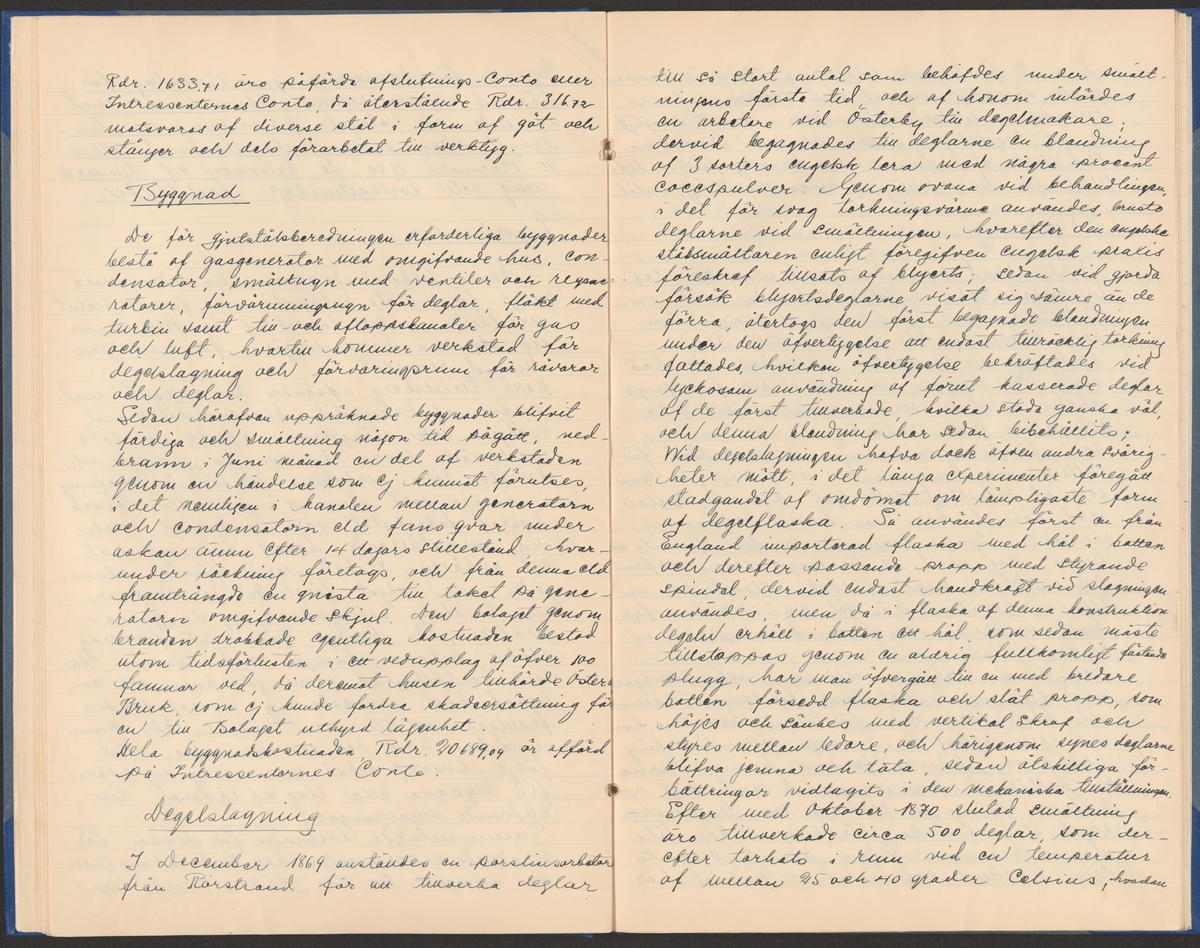 Rdr. 1633,71 äro påförda afslutnings-Conto eller
Intressenternes Conto, då återstående Rdr. 316,72
motsvaras af diverse stål i form af göt och
stänger och dels förarbetat till verktyg.
Byggnad
De för gjutstålsberedningen erforderliga byggnader
bestå af gasgenerator med omgifvande hus, con-
densator, smältugn med ventiler och regene-
ratorer, förvärmningsugn för deglar, fläkt med
turbin samt till- och afloppskanaler för gas
och luft, hvartill kommer verkstad för
degelslagning och förvaringsrum för råvaror
och deglar.
Sedan härofvan uppräknade byggnader blifvit
färdiga och smältning någon tid pågått, ned-
brann i Juni månad en del af verkstaden
genom en händelse som ej kunnat förutses,
i det nemligen i kanalen mellan generatorn
och condensatorn eld fans qvar under
askan ännu efter 14 dagars stillestånd, hvar-
under räckning företogs, och från denna eld
framträngde en gnista till taket på gene-
ratorn omgifvande skjul. Den bolaget genom
branden drabbade egentliga kostnaden bestod
utom tidsförlusten i ett vedupplag af öfver 100
famnar ved, då deremot husen tillhörde Österb
Bruk, som ej kunde fordra skadeersättning för
en till Bolaget uthyrd lägenhet.
Hela byggnadskostnaden, Rdr. 20689,09 är afförd
på Intressenternes Conto.
Degelslagning
I December 1869 anställdes en porslinsarbetare
från Rörstrand för att tillverka deglar
till så stort antal som behöfdes under smält-
ningens första tid, och af honom inlärdes
en arbetare vid Österby till degelmakare;
dervid begagnades till deglarne en blandning
af 3 sorters engelsk lera med några procent
coccspulver. Genom ovana vid behandlingen,
i det för svag torkningsvärme användes, brusto
deglarne vid smältningen, hvarefter den engelske
stålsmältaren enligt föregifven engelsk praxis
föreskref tillsats af blyerts; sedan vid gjorda
försök blyertsdeglarne visat sig sämre än de
förra, återtogs den först begagnade blandningen
under den öfvertygelse att endast tillräcklig torkning
fattades, hvilken öfvertygelse bekräftades vid
lyckosam användning af förut kasserade deglar
af de först tillverkade, hvilka stodo ganska väl,
och denna blandning har sedan bibehållits;
Wid degelslagningen hafva dock äfven andra svårig-
heter mött, i det långa experimenter föregått
stadgandet af omdömet om lämpligaste form
af degelflaska. Så användes först en från
England importerad flaska med hål i botten
och derefter passande propp med styrande
spindel, dervid endast handkraft vid slagningen
användes, men då i flaska af denna konstruktion
degeln erhåll i botten ett hål, som sedan måste
tillstoppas genom en aldrig fullkomligt fästande
plugg, har man öfvergått till en med bredare
botten försedd flaska och slät propp, som
höjes och sänkes med vertikal skruf och
styres mellan ledare, och härigenom synes deglarne
blifva jemna och täta, sedan åtskilliga för-
bättringar vidtagits i den mekaniska tillställningen.
Efter med Oktober 1870 slutad smältning
äro tillverkade circa 500 deglar, som der-
efter torkats i rum vid en temperatur
af mellan 25 och 40 grader Celsius, hvadan